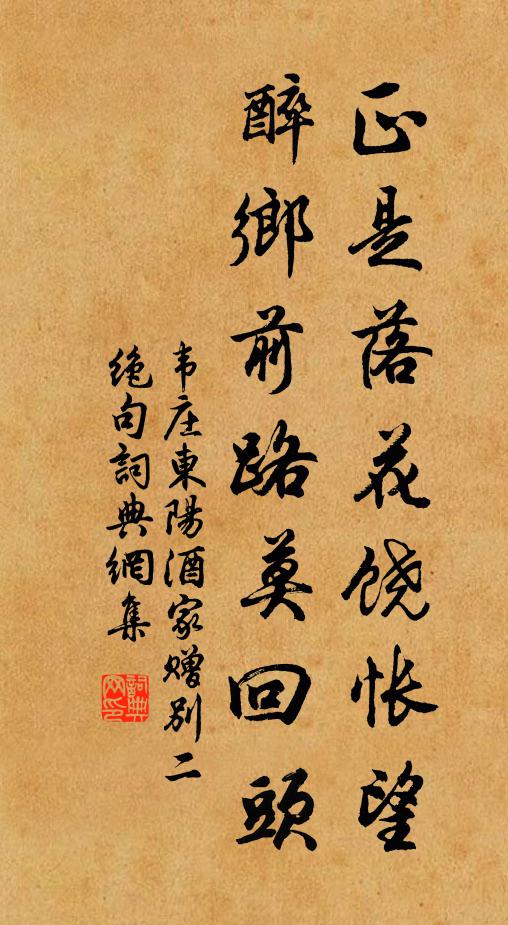 正是落花饶怅望
醉鄉前路莫回頭
韦庄東陽酒家赠别二
绝句詞典網集
詞典網印